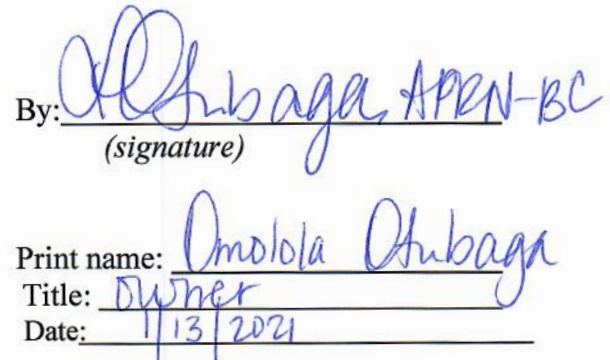 By: Otubaga, APRN-BC
(signature)
Print name: Omolola Otubaga
Title: Owner
Date: 1/13/2021